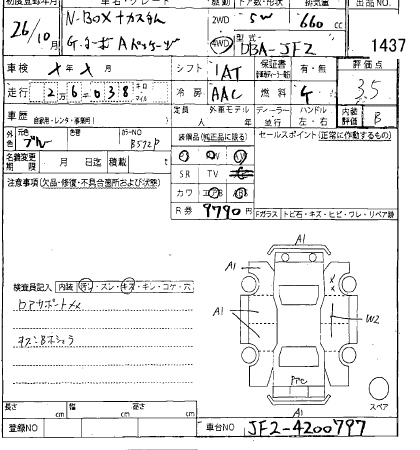 初度登録年月 車名・グレード 駆動 ドア数・形状 排気量 出品NO
26/10月 N-BOX+カスタム 2WD 5W 660cc
G・ターボ Aパッケージ 4WD 型式 DBA-JF2 1437
車検 年 月 シフト 1AT 保証書 有・無 評価点
走行 26038 キロ マイル 冷房 AAC 燃料 G 3.5
車歴 自家用・レンタ・事業用 定員 人 外車モデル 年 ディーラー 並行 ハンドル 左・右 内装評価 B
外色 元色 色替 カラーNO 装備品(純正品に限る) セールスポイント(正常に作動するもの)
B572P
名義変更期限 月 日迄 積載 t SR TV
注意事項(欠品・修復・不具合箇所および状態) カワ エアB ABS
R券 9790円 Fガラス トビ石・キズ・ヒビ・ワレ・リペア跡
A1
A1
検査員記入 内装 汚レ・スレ・キズ・キレ・コゲ・穴
A1
W2
PPC
A1
スペア
長さ cm 幅 cm 高さ cm
登録NO 車台NO JF2-4200797